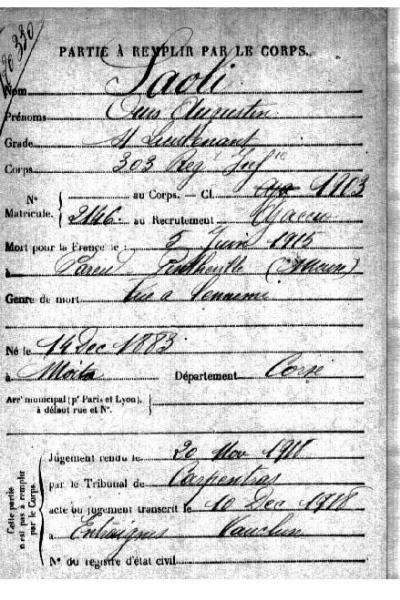 330
PARTIE À REMPLIR PAR LE CORPS.
Nom Paoli
Prénoms Augustin
Grade St Lieutenant
Corps 303 Reg Infie
N° Matricule. { au Corps. — Cl. 1903
2146. au Recrutement Ajaccio
Mort pour la France le 5 Juin 1915
à
Genre de mort Tué à l'ennemi
Né le 14 Dec 1883
à Moita Département Corse
Arrt municipal (pr Paris et Lyon), à défaut rue et N°. {
Cette partie n'est pas à remplir par le Corps.
Jugement rendu le 20 Nov 1918
par le Tribunal de Carpentras
acte ou jugement transcrit le 10 Dec 1918
à Entraigues Vaucluse
N° du registre d'état civil